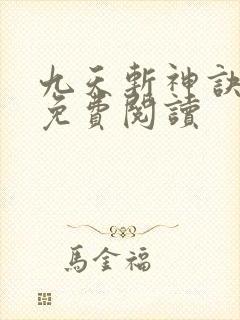 九天斬神訣
免費閱讀
馬金福